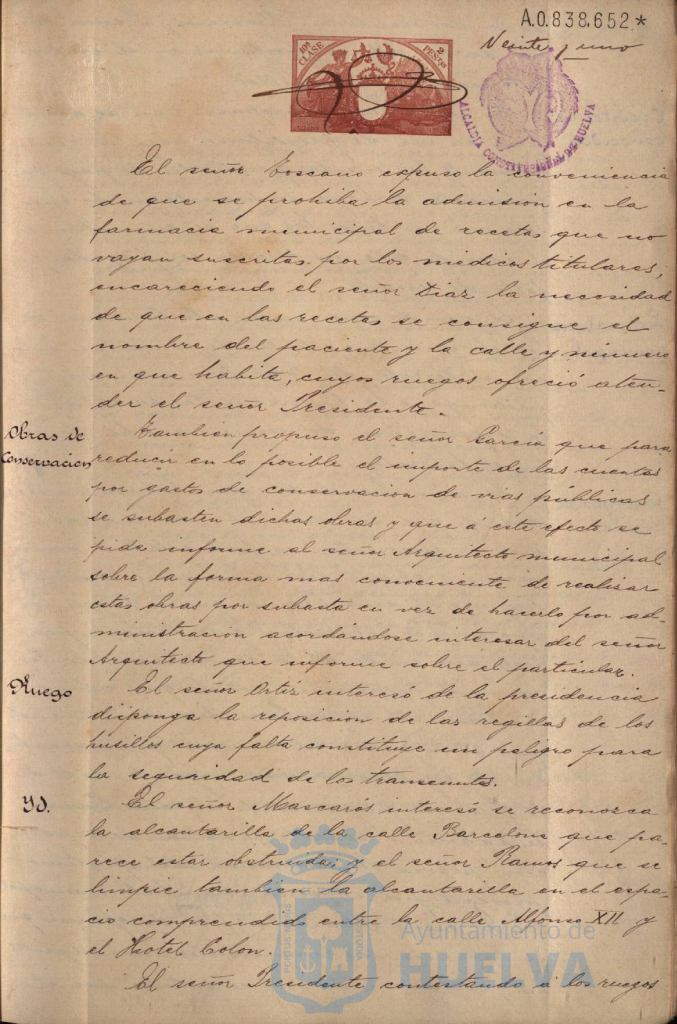 A.0.838,652*
Veinte y uno
10ª CLASE
2 PESETAS
ALCALDIA CONSTITUCIONAL DE HUELVA
El señor Toscano expuso la conveniencia
de que se prohiba la admision en la
farmacia municipal de recetas que no
vayan suscritas por los médicos titulares,
encareciendo el señor Diaz la necesidad
de que en las recetas se consigne el
nombre del paciente y la calle y número
en que habita, cuyos ruegos ofreció aten-
der el señor Presidente.
Obras de
Conservacion
Tambien propuso el señor Garcia que para
reducir en lo posible el importe de las cuentas
por gastos de conservacion de vias públicas
se subasten dichas obras y que á este efecto se
pida informe al señor Arquitecto municipal
sobre la forma mas conveniente de realisar
estas obras por subasta en vez de hacerlo por ad-
ministracion acordándose interesar del señor
Arquitecto que informe sobre el particular.
Ruego
El señor Ortiz interesó de la presidencia
disponga la reposicion de las regillas de los
husillos cuya falta constituye un peligro para
la seguridad de los transeuntes.
Yd.
El señor Mascarós interesó se reconozca
la alcantarilla de la calle Barcelona que pa-
rece estar obstruida; y el señor Ramos que se
limpie tambien la alcantarilla en el espa-
cio comprendido entre la calle Alfonso XII y
el Hotel Colon.
El señor Presidente contestando á los ruegos
Ayuntamiento de
HUELVA